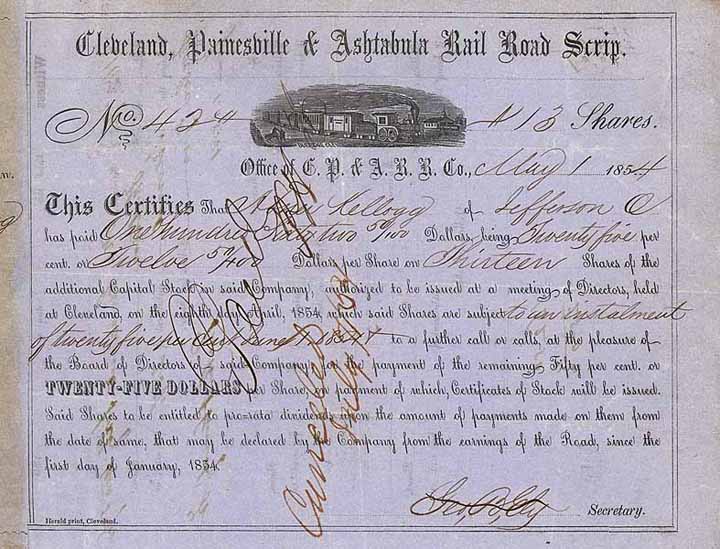 Cleveland, Painesville & Ashtabula Rail Road Scrip.
No. 424 13 Shares.
Office of C. P. & A. R. R. Co., May 1 1854
This Certifies That Kellogg of Jefferson O
has paid One hundred Sixty two 50/100 Dollars, being Twenty five per
cent. or Twelve 50/100 Dollars per Share on Thirteen Shares of the
additional Capital Stock in said Company, authorized to be issued at a meeting of Directors, held
at Cleveland, on the eighth day of April, 1854, which said Shares are subject to an instalment
of twenty five per Cent June 1 1854 to a further call or calls, at the pleasure of
the Board of Directors of said Company for the payment of the remaining Fifty per cent. or
TWENTY-FIVE DOLLARS per Share, on payment of which, Certificates of Stock will be issued.
Said Shares to be entitled to pro-rata dividends upon the amount of payments made on them from
the date of same, that may be declared by the Company from the earnings of the Road, since the
first day of January, 1854.
Secretary.
Herald print, Cleveland.
Cancelled